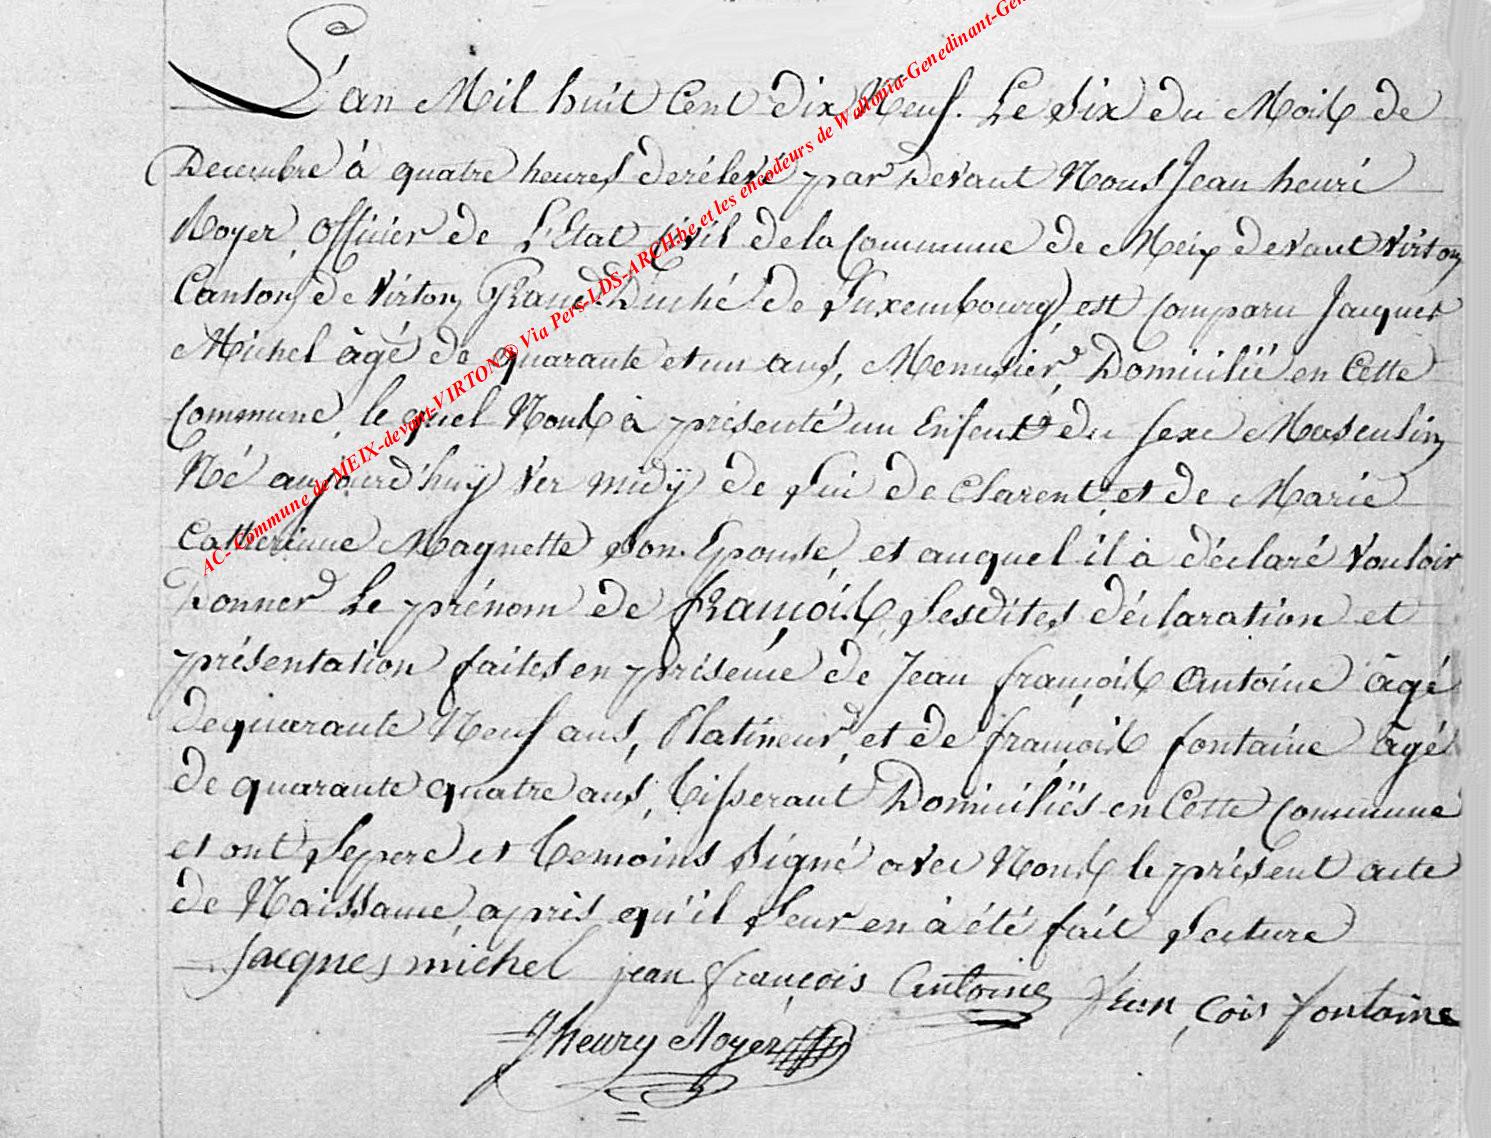 L'an Mil huit Cent dix Neuf. Le Six du Mois de
Decembre à quatre heures derélevé par Devant Nous Jean henri
Noyer, Officier de L'Etat Civil dela Commune de Meix devant Virton
Canton de Virton Grand Duché de Luxembourg, est Comparu Jacques
Michel âgé de quarante et un ans, Menusier, Domicilié en Cette
Commune, le quel Nous à présenté un Enfent du Sexe Masculin
Né aujourd'huÿ Ver midÿ de Lui de Clarent, et de Marie
Catherinne Magnette Son Epouse, et auquel il à déclaré Vouloir
Donner Le prénom de françois, Lesdites déclaration et
présentation faites en présence de Jean françois Antoine âgé
dequarante Neuf ans, Platineur, et de françois fontaine âgé
de quarante quatre ans, Tisserant Domiciliés en Cette Commune
et ont Lepere et Temoins Signé avec Nous le présent acte
de Naissance, apris qu'il Leur en à été fait Lecture
Jacques michel jean françois Antoine fran çois fontaine
Jhenry Noyer
AC- Commune de MEIX-devant-VIRTON® Via Pers-LDS-ARCH.be et les encodeurs de Wallonia-Genedinant-Gen